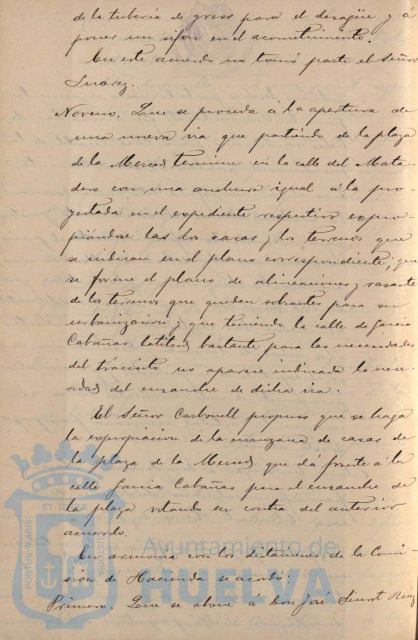 de la tubería de gress para el desagüe y á
poner un sifon en el acometimiento.
En este acuerdo no tomó parte el Señor
Suarez.
Noveno. Que se proceda á la apertura de
una nueva via que partiendo de la plaza
de la Merced termine en la calle del Mata-
dero con una anchura igual á la pro-
yectada en el expediente respectivo expro-
piándose las dos casas y los terrenos que
se indican en el plano correspondiente, que
se forme el plano de alineaciones y rasante
de los terrenos que queden sobrantes para su
urbanizacion y que teniendo la calle de Garcia
Cabañas latitud bastante para las necesidades
del tránsito no aparece indicada la nece-
sidad del ensanche de dicha via.
El Señor Carbonell propuso que se haga
la expropiacion de la manzana de casas de
la plaza de la Merced que dá frente á la
calle Garcia Cabañas para el ensanche de
la plaza votando en contra del anterior
acuerdo.
En armonia con los dictámenes de la Comi-
sion de Hacienda se acordó:
Primero. Que se abone á Don José
PORTUS MARIS
ET TERRAE
Ayuntamiento de
HUELVA